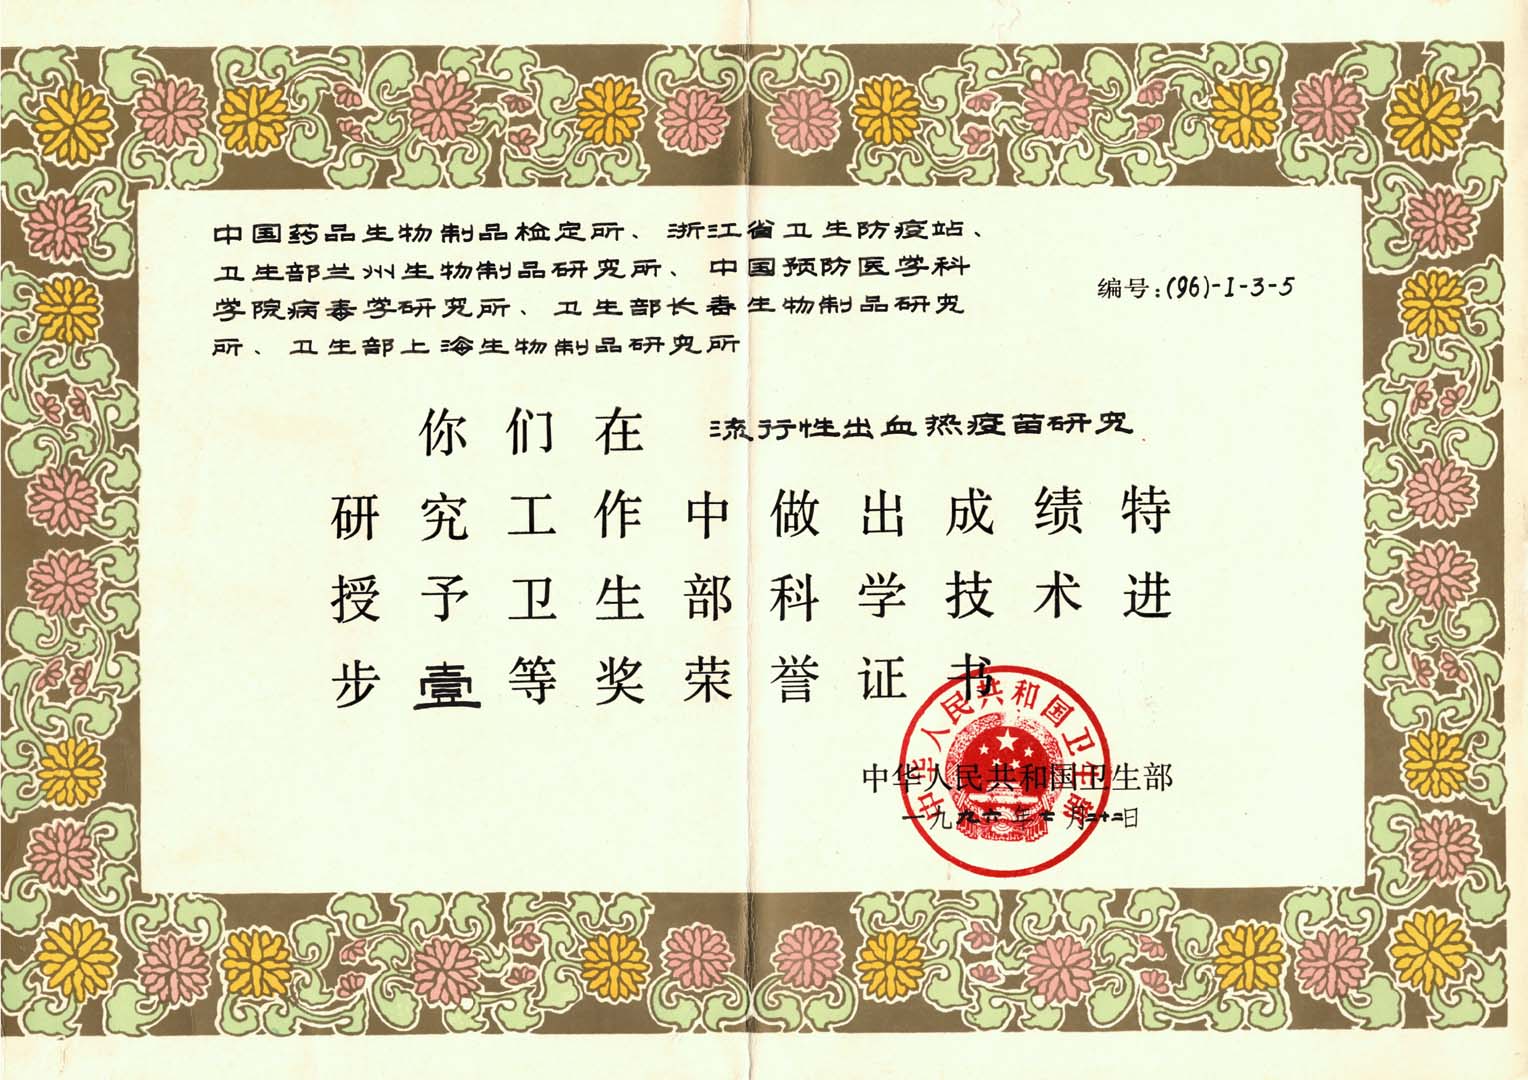 中国药品生物制品检定所、浙江省卫生防疫站、
卫生部兰州生物制品研究所、中国预防医学科
学院病毒学研究所、卫生部长春生物制品研究
所、卫生部上海生物制品研究所
编号:(96)-1-3-5
你们在 流行性出血热疫苗研究
研究工作中做出成绩特
授予卫生部科学技术进
步壹等奖荣誉证书
中华人民共和国卫生部
中华人民共和国卫生部
一九九六年七月二十二日